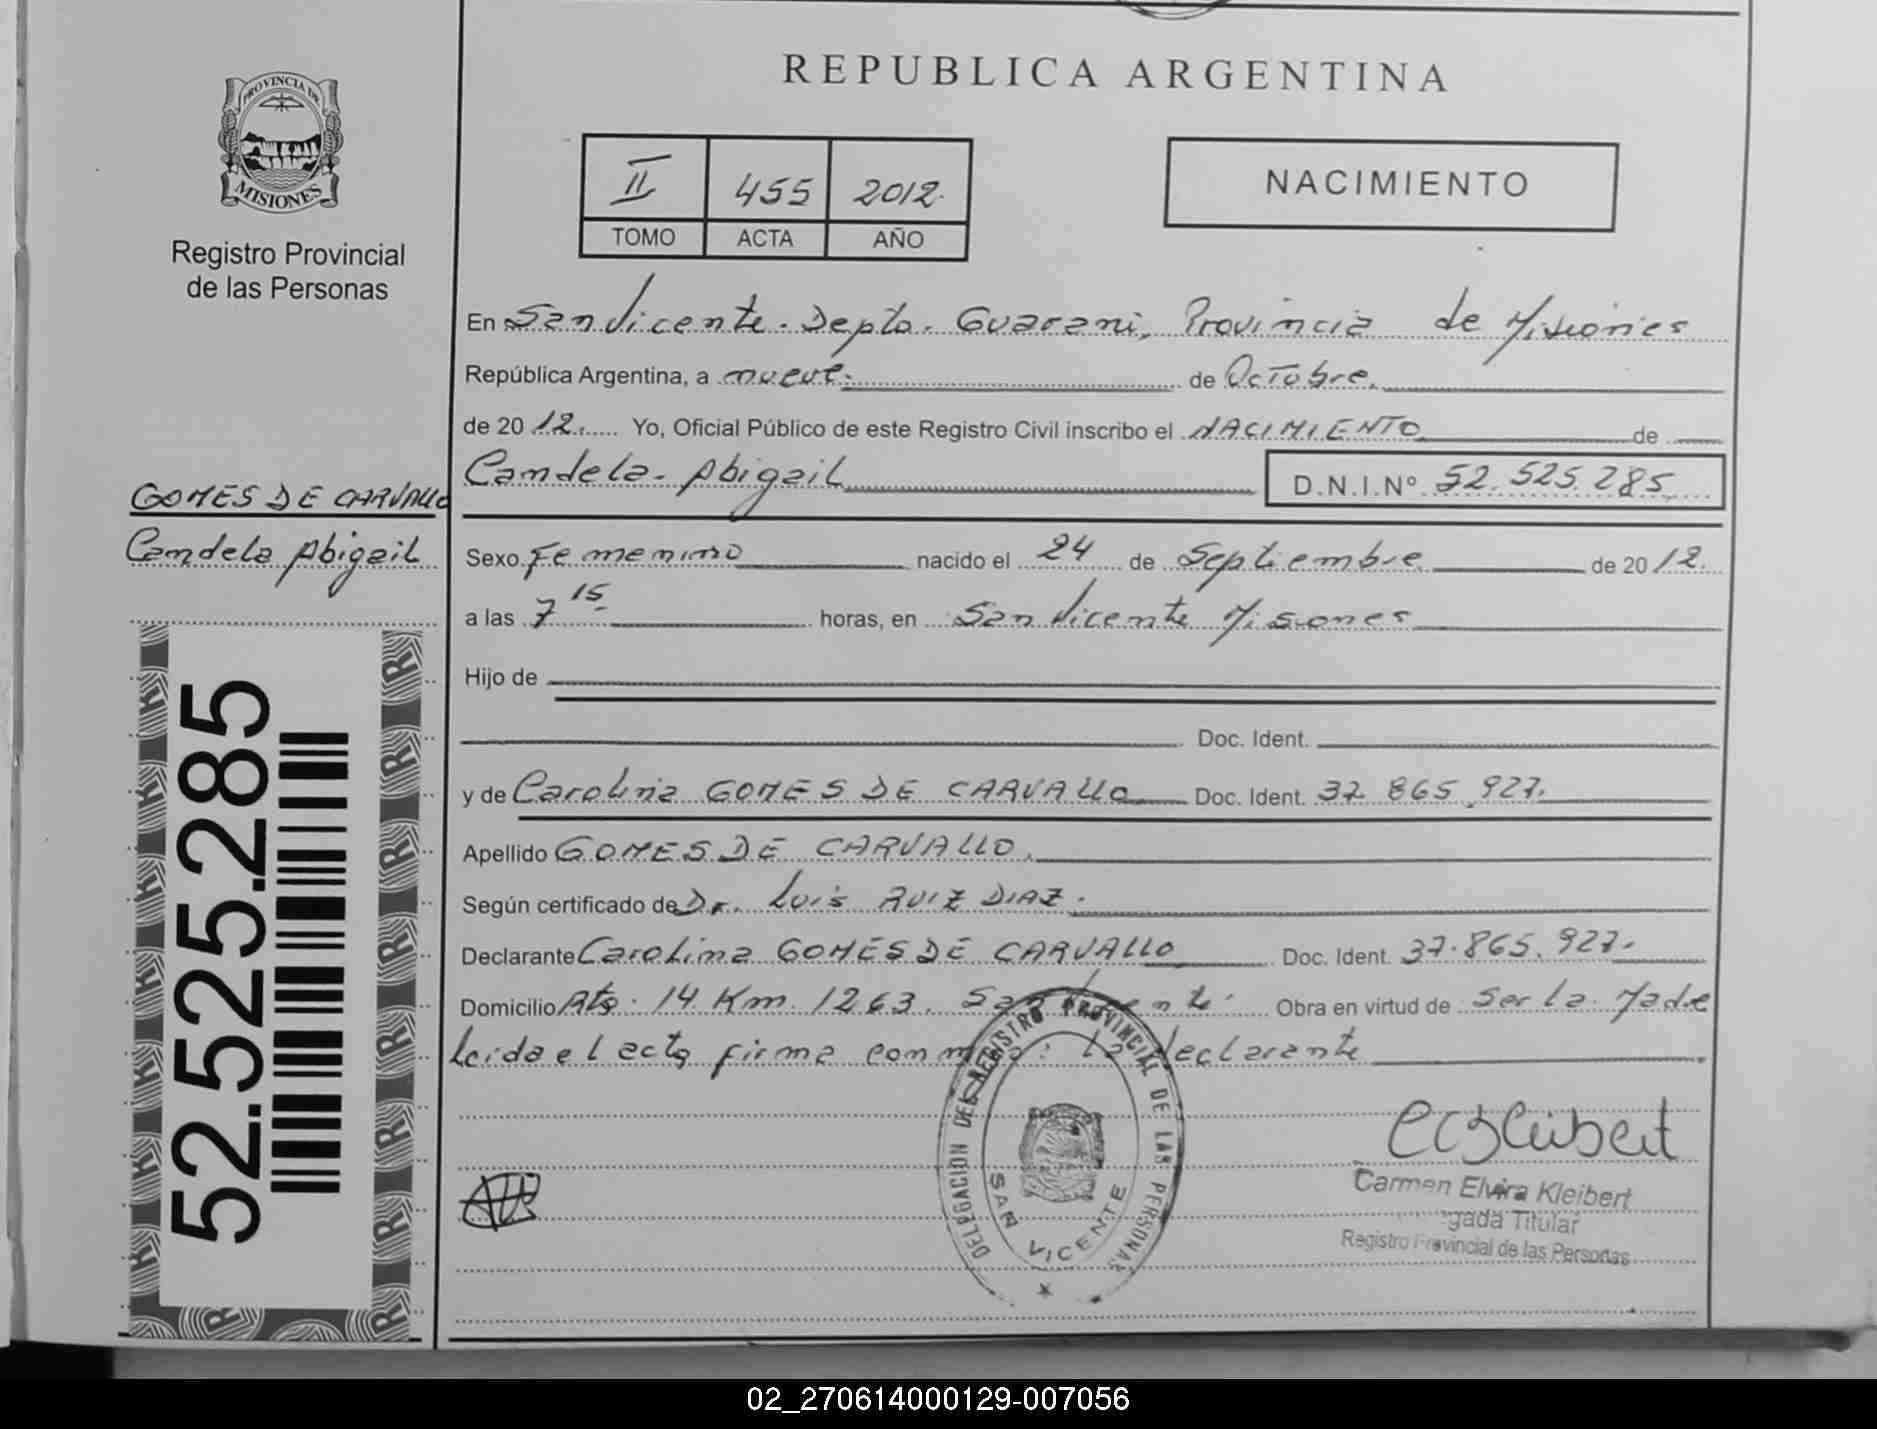 REPUBLICA ARGENTINA
PROVINCIA DE
MISIONES
Registro Provincial
de las Personas
II 455 2012.
TOMO ACTA AÑO
NACIMIENTO
En San Vicente. Depto. Guarani, Provincia de Misiones
República Argentina, a nueve. de Octubre.
de 20 12. Yo, Oficial Público de este Registro Civil inscribo el NACIMIENTO de
Candela - Abigail D.N.I.Nº 52.525.285
GOMES DE CARVALLO
Candela Abigail
Sexo Femenino nacido el 24 de Septiembre de 20 12.
a las 7 15 horas, en San Vicente Misiones
Hijo de
Doc. Ident.
y de Carolina GOMES DE CARVALLO Doc. Ident. 37 865 927.
Apellido GOMES DE CARVALLO.
Según certificado de Dr. Luis RUIZ DIAZ.
Declarante Carolina GOMES DE CARVALLO Doc. Ident. 37.865.927.
Domicilio Rta: 14 Km. 1263. San Vicente. Obra en virtud de Ser la Madre
Leida el acta firma conmigo: La declarante
52.525.285
DELEGACION DEL REGISTRO PROVINCIAL DE LAS PERSONAS
SAN VICENTE
Carmen Elvira Kleibert
Titular
Registro Provincial de las Personas
02_270614000129-007056